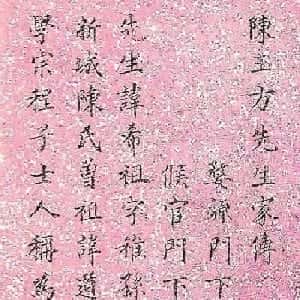 陳玉方先生家傳
婺源門下
候官門下
先生諱希祖字稚孫
新城陳氏曾祖諱道
學宗程子士人稱為